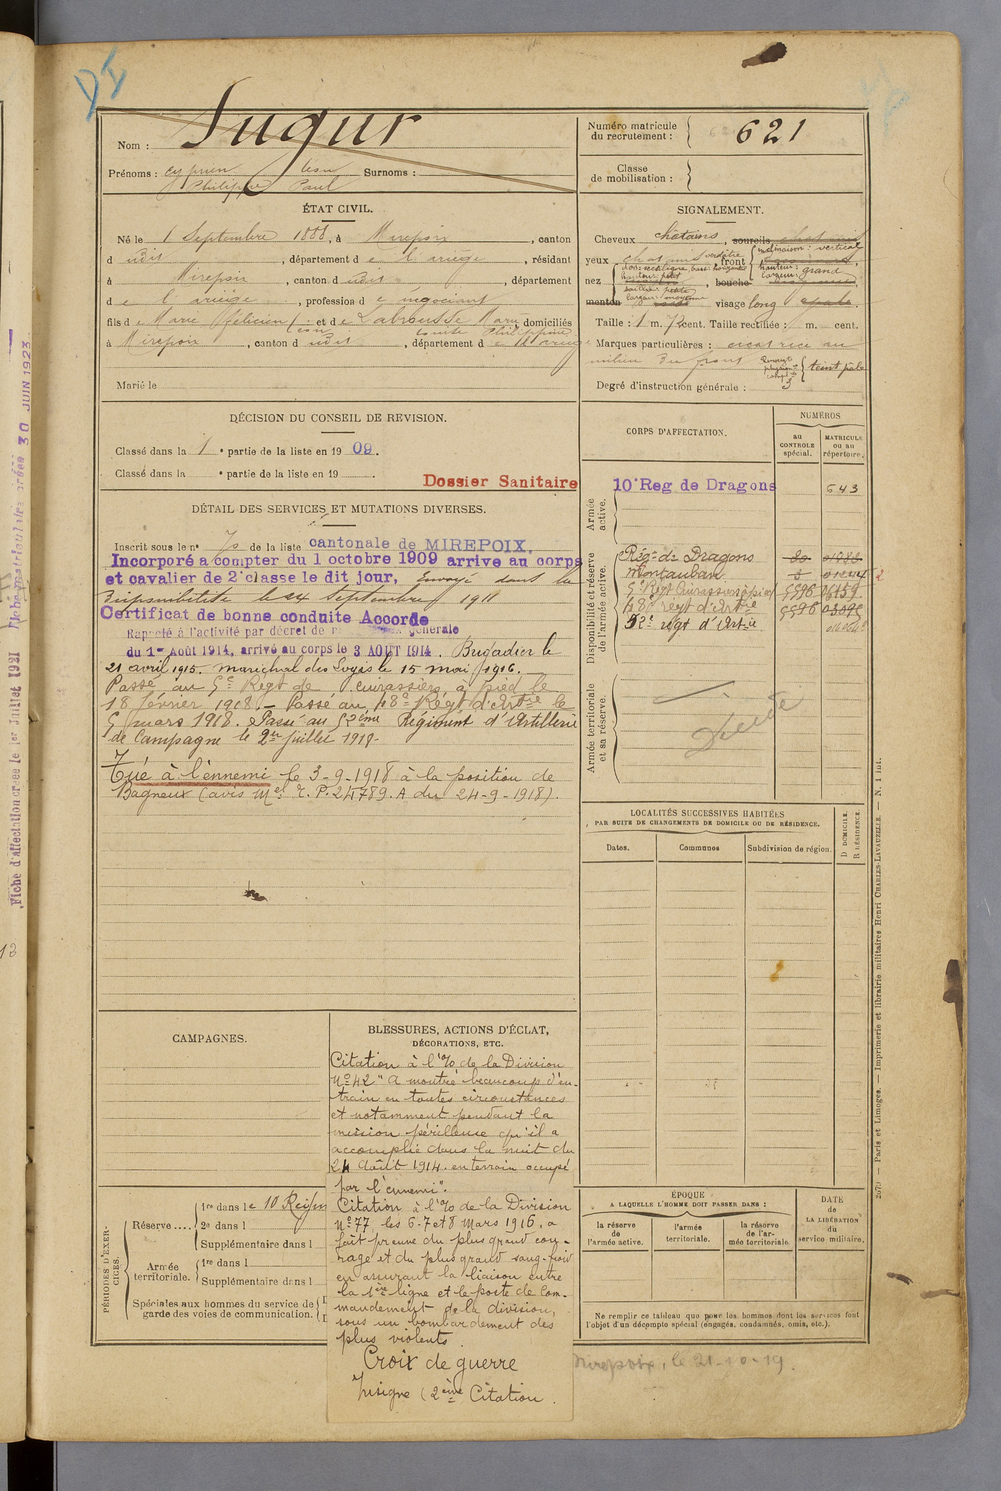 Jugur
Nom :
Numéro matricule
du recrutement :
621
Prénoms : Cyprien Léon
Philippe Paul
Surnoms :
Classe
de mobilisation :
ÉTAT CIVIL.
Né le 1 Septembre 1888, à Mirepoix, canton
d udit, département de l'ariège, résidant
à Mirepoix, canton d udit, département
de l'ariège, profession de negociant
fils de Marie Félicien Léon et de Labrousse Marie domiciliés
à Mirepoix, canton d udit, département de l'Ariège
Marié le
SIGNALEMENT.
Cheveux châtains, sourcils
yeux, front
inclinaison : verticale
hauteur : grand
largeur :
nez, bouche
menton visage long
Taille : 1 m. 72 cent. Taille rectifiée : m. cent.
Marques particulières : cicatrice au
milieu du front
teint pâle
Degré d'instruction générale : 3
DÉCISION DU CONSEIL DE REVISION.
Classé dans la 1e partie de la liste en 1909.
Classé dans la e partie de la liste en 19
Dossier Sanitaire
DÉTAIL DES SERVICES ET MUTATIONS DIVERSES.
Inscrit sous le n° de la liste cantonale de MIREPOIX.
Incorporé a compter du 1 octobre 1909 arrive au corps
et cavalier de 2e classe le dit jour, Envoyé dans la
disponibilité le 24 Septembre 1911
Certificat de bonne conduite Accordé
Rappelé à l'activité par décret de générale
du 1er Août 1914, arrivé au corps le 3 AOUT 1914. Brigadier le
21 avril 1915. maréchal des Logis le 15 mai 1916.
Passé au 5e Régt de Cuirassiers à pied le
18 février 1918. - Passé au 180e Régt d'Artie le
5 mars 1918. Passé au 52ème Régiment d'Artillerie
de Campagne le 2 juillet 1918.
Tué à l'ennemi le 3-9-1918 à la position de
Bagneux (avis Mel r. P. 24789. A du 24-9-1918).
CORPS D'AFFECTATION.
NUMÉROS
au
CONTROLE
spécial.
MATRICULE
ou au
répertoire.
Armée
active.
10e Reg de Dragons
643
Disponibilité et réserve
de l'armée active.
Régt de Dragons
Montauban
5e Régt Cuirassiers à pied 5596 06459
180e régt d'Artie 5596
52e régt d'Artie
Armée territoriale
et sa réserve.
Décédé
LOCALITÉS SUCCESSIVES HABITÉES
PAR SUITE DE CHANGEMENTS DE DOMICILE OU DE RÉSIDENCE.
Dates.
Communes
Subdivision de région.
D DOMICILE.
R RÉSIDENCE.
CAMPAGNES.
BLESSURES, ACTIONS D'ÉCLAT,
DÉCORATIONS, ETC.
Citation à l'% de la Division
N° 42 "a montré beaucoup d'en-
train en toutes circonstances
et notamment pendant la
mission périlleuse qu'il a
accomplie dans la nuit du
24 Août 1914. en terrain occupé
par l'ennemi".
Citation à l'% de la Division
N° 77 les 6-7 et 8 Mars 1916, a
fait preuve du plus grand cou-
rage et du plus grand sang-froid
en assurant la liaison entre
la 1ère ligne et le poste de Com-
mandement de la division,
sous un bombardement des
plus violents
Croix de guerre
Insigne (2ème Citation.
PÉRIODES D'EXER-
CICES.
Réserve ....
1re dans le 10 Régim
2e dans l
Supplémentaire dans l
Armée
territoriale.
1re dans l
Supplémentaire dans l
Spéciales aux hommes du service de
garde des voies de communication.
ÉPOQUE
A LAQUELLE L'HOMME DOIT PASSER DANS :
la réserve
de
l'armée active.
l'armée
territoriale.
la réserve
de l'ar-
mée territoriale.
DATE
de
LA LIBÉRATION
du
service militaire.
Ne remplir ce tableau que pour les hommes dont les services font
l'objet d'un décompte spécial (engagés, condamnés, omis, etc.).
Mirepoix, le 21-10-19.
2079 — Paris et Limoges. — Imprimerie et librairie militaires Henri CHARLES-LAVAUZELLE. — N. 1 lut.
Fiche d'Affectation créée le 1er Juillet 1921
Fiche Matriculaire créée 30 JUIN 1923